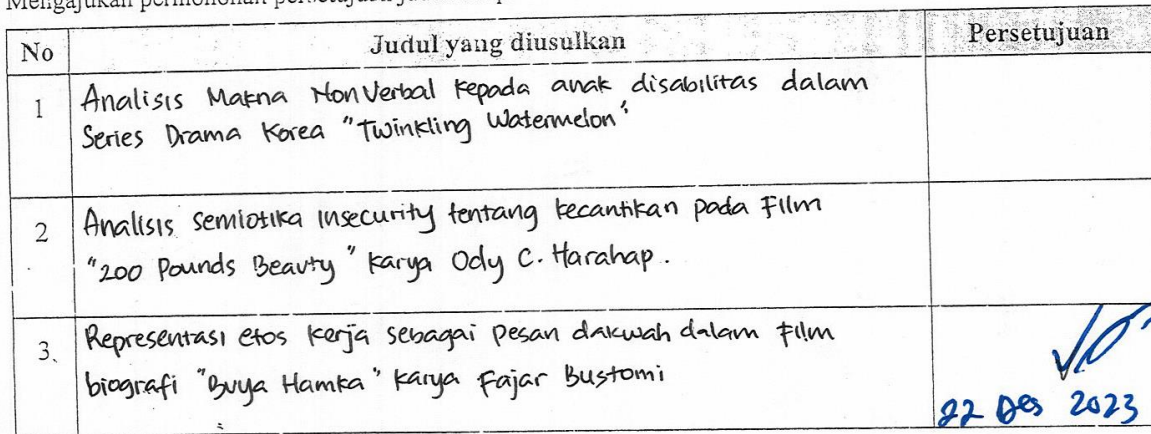 Mengajukan permohonan persetujuan
No Judul yang diusulkan Persetujuan
1 Analisis Makna NonVerbal kepada anak disabilitas dalam
Series Drama Korea "Twinkling Watermelon"
2 Analisis semiotika insecurity tentang kecantikan pada Film
"200 Pounds Beauty" karya Ody C. Harahap.
3. Representasi etos kerja sebagai pesan dakwah dalam Film
biografi "Buya Hamka" karya Fajar Bustomi
22 Des 2023